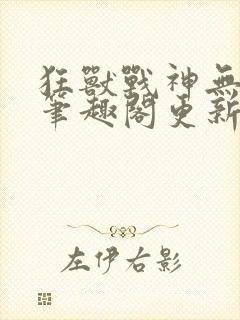 狂獸戰神無
筆趣閣更新
左伊右影